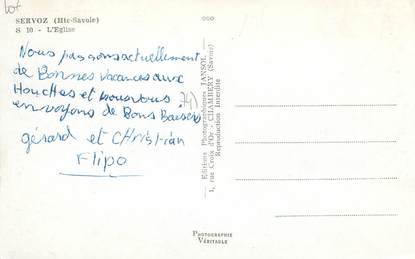 SERVOZ (Hte-Savoie)
S 10 - L'Eglise
Nous passons actuellement
de Bonnes Vacances aux
Houches et nous vous
envoyons de Bons Baisers
gérard et CHristian
Flipo
Editions Photographiques TANSOL
1, rue Croix d'Or - CHAMBÉRY (Savoie)
Reproduction Interdite
PHOTOGRAPHIE
VÉRITABLE